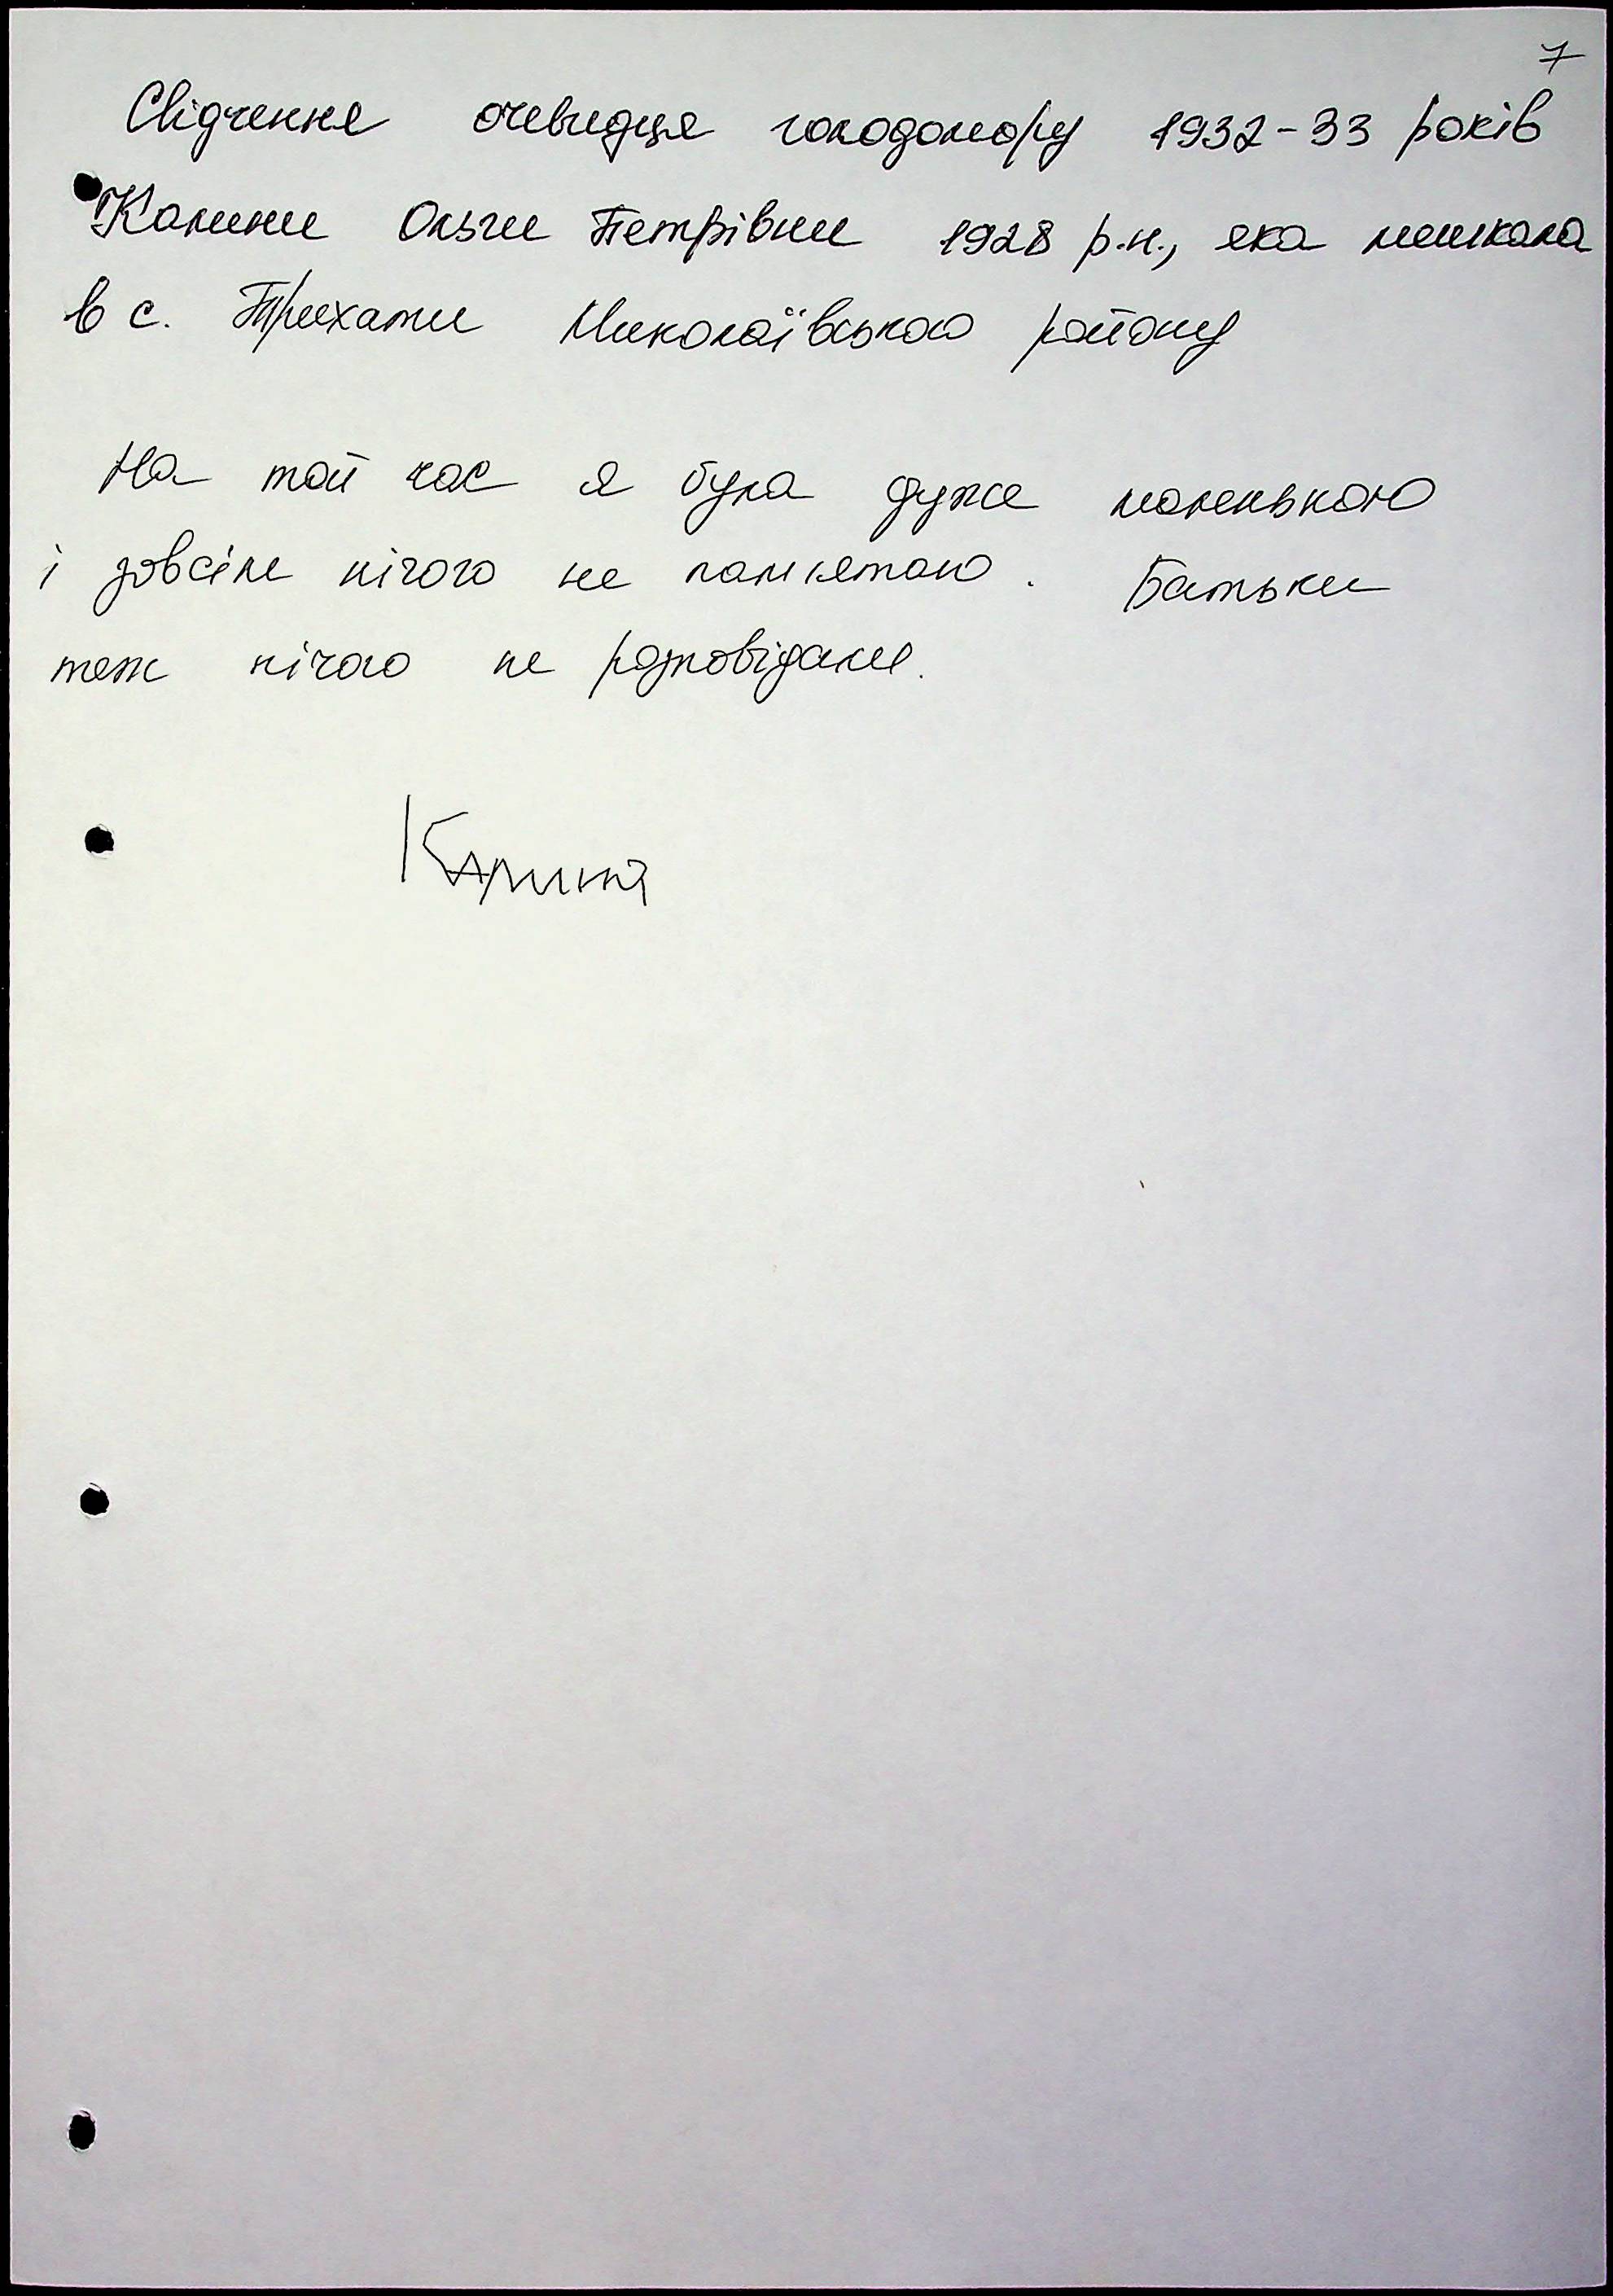 7
Свідчення очевидця голодомору 1932-33 років
Калини Ольги Петрівни 1928 р.н., яка мешкала
в с. Трихати Миколаївського району
На той час я була дуже маленькою
і зовсім нічого не памятаю. Батьки
теж нічого не розповідали.
Калина